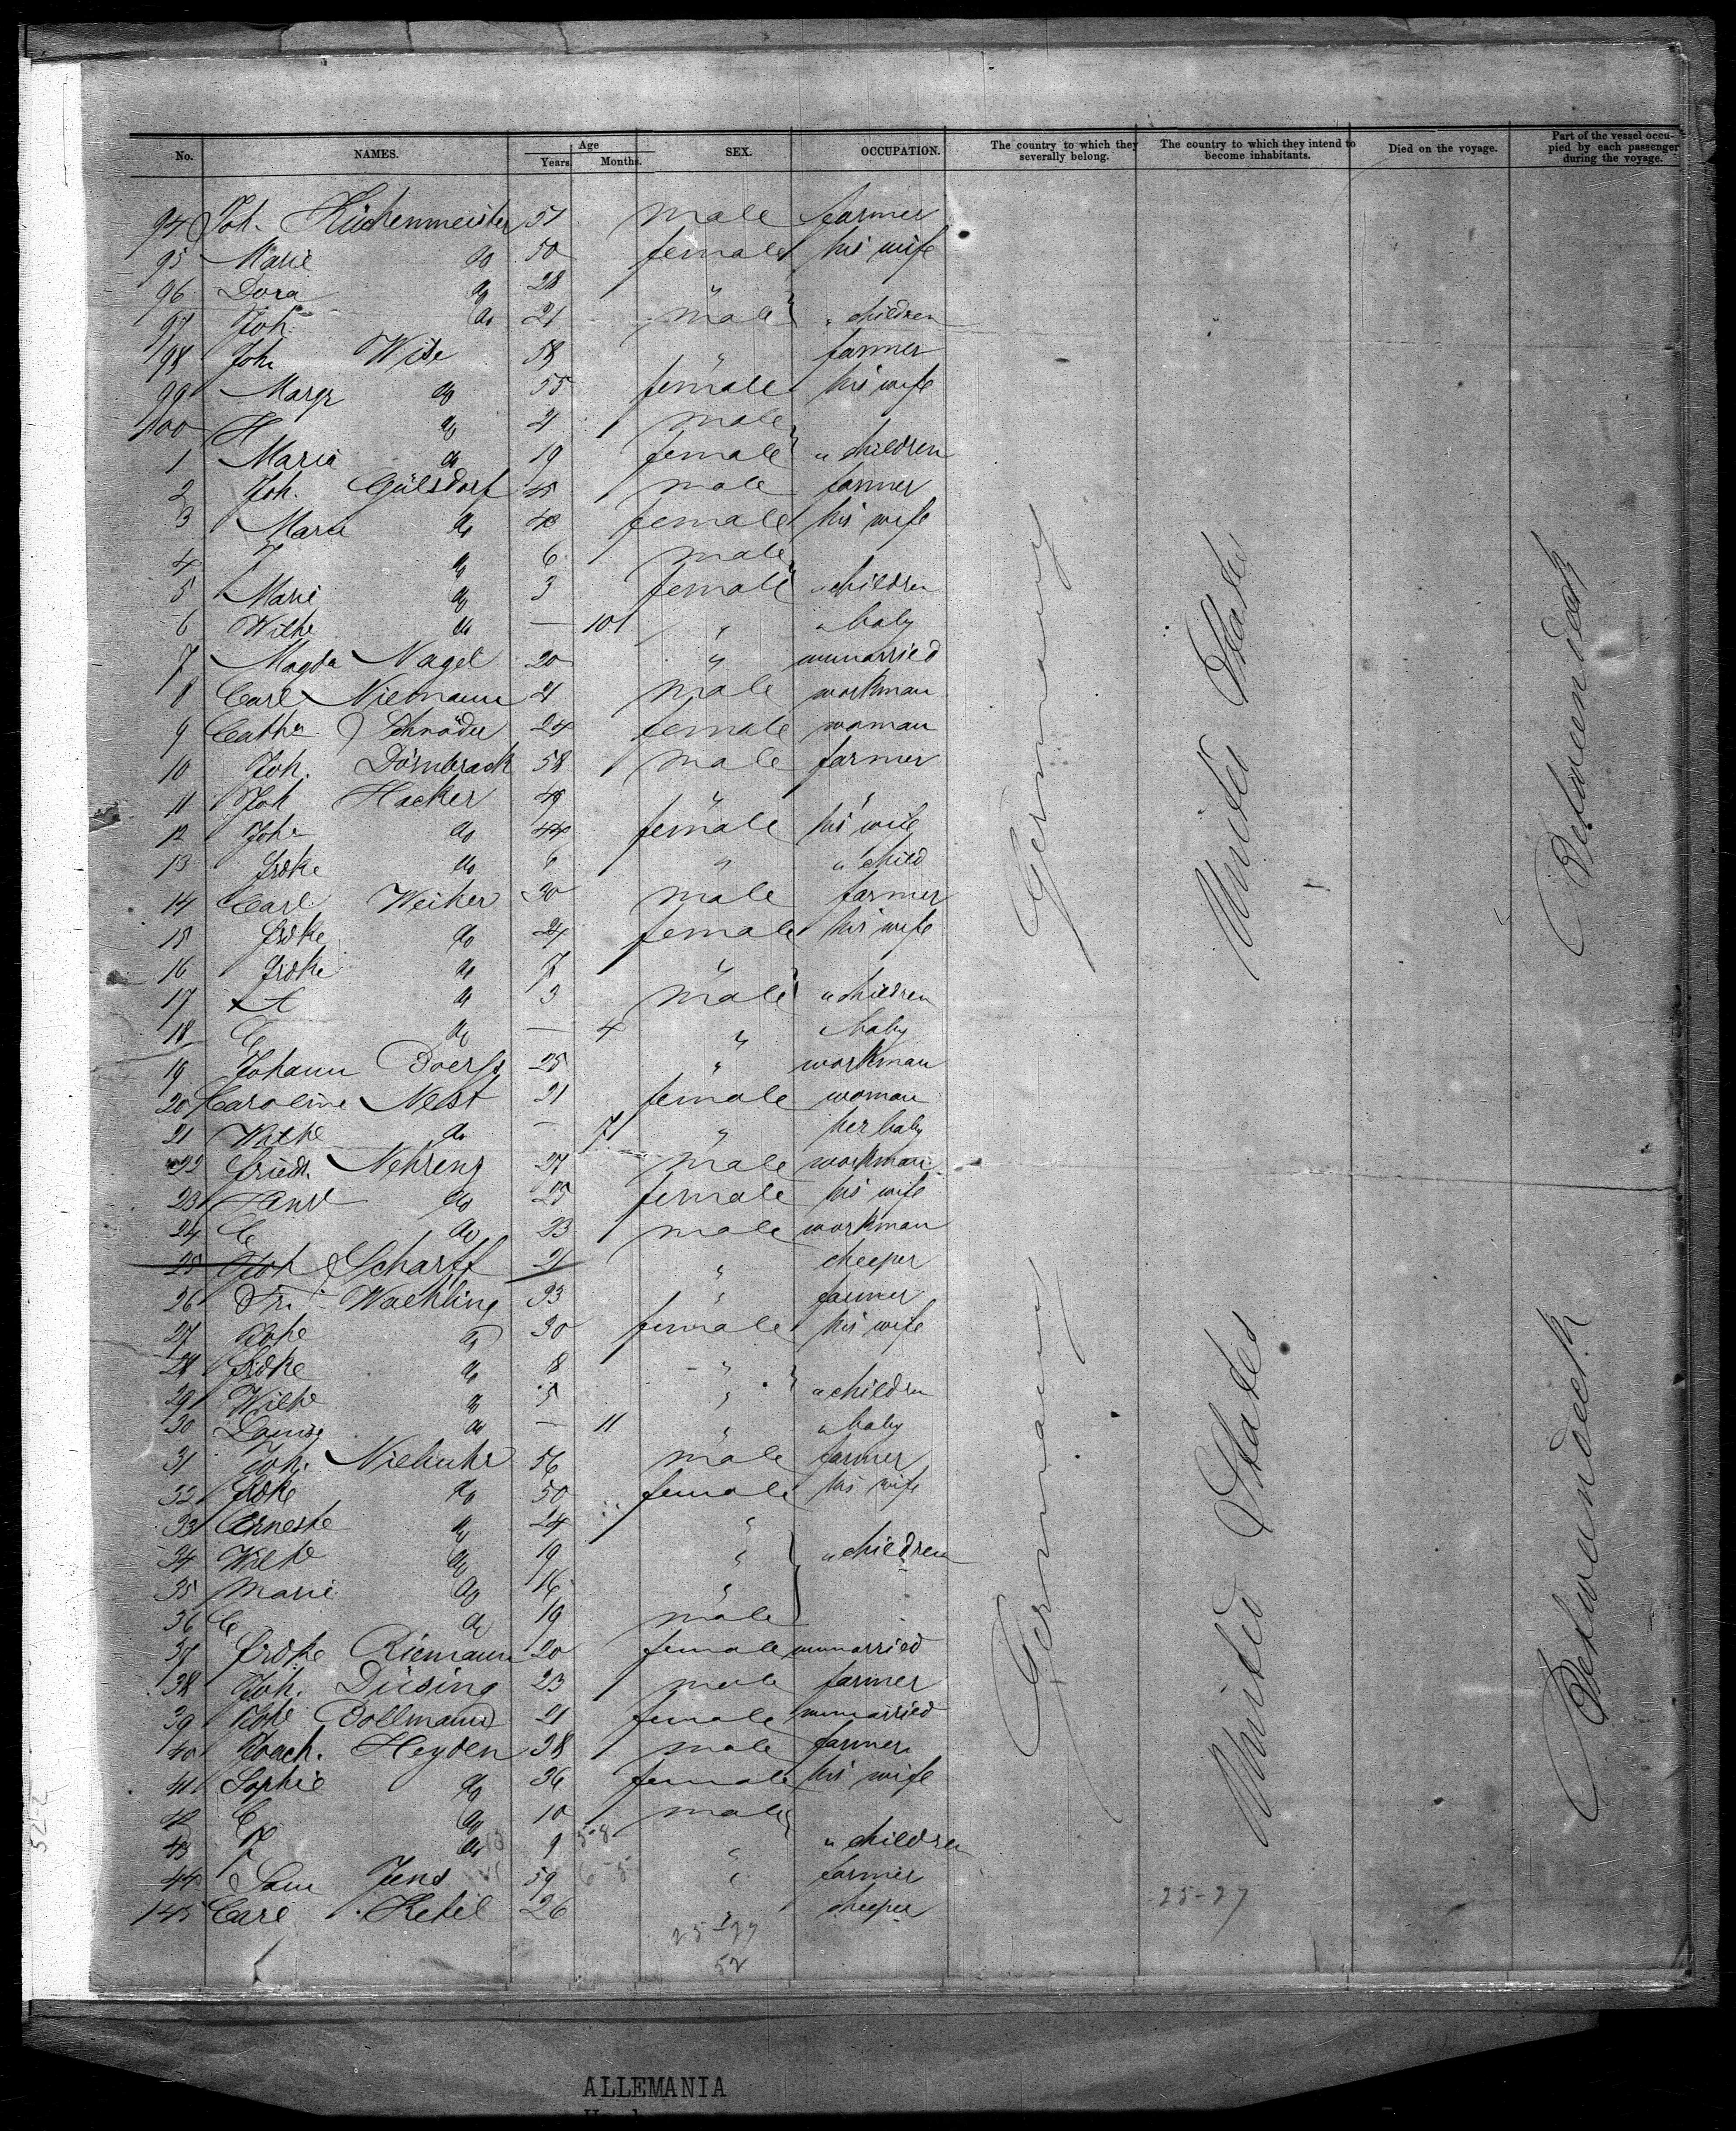 No. NAMES. Age Years. Months. SEX. OCCUPATION. The country to which they severally belong. The country to which they intend to become inhabitants. Died on the voyage. Part of the vessel occupied by each passenger during the voyage.
94 Joh. Küchenmeister 51 male farmer
95 Marie do 50 female his wife
96 Dora do 28 "
97 Joh. do 21 male " children
98 Joh Wise 58 " farmer
99 Margr do 55 female his wife
100 H do 21 male
1 Maria do 19 female " children
2 Joh. Gülsdorf 45 male farmer
3 Maria do 40 female his wife
4 do 6 male
5 Marie do 3 female " children
6 Wilhe do — 10 " " baby
7 Magda Nagel 20 " unmarried
8 Carl Niemann 21 male workman
9 Cathn Schröder 24 female woman
10 Joh. Dörnbrack 58 male farmer
11 Joh Hacker 49 " "
12 Johe do 44 female his wife
13 Frdke do 6 " " child
14 Carl Weiker 30 male farmer
15 Frdke do 24 female his wife
16 Frdke do 7 "
17 A do 3 male " children
18 C do — 4 " baby
19 Johann 25 " workman
20 Caroline Nest 31 female woman
21 Wilhe do — 7 " her baby
22 Friedr. Nehreng 27 male workman
23 do 25 female his wife
24 C do 23 male workman
25 Joh Scharff 21 " cheeper
26 Fr. Waehling 33 " farmer
27 do 30 female his wife
28 Frdke do 8 "
29 Wilhe do 5 " " children
30 Louise do — 11 " " baby
31 Joh. Niebuhr 56 male farmer
32 Frdke do 50 female his wife
33 Erneste do 24 "
34 Wilhe do 19 " " children
35 Marie do 16 "
36 C do 19 male
37 Frdke Riemann 20 female unmarried
38 Joh. Düsing 23 male farmer
39 Dollmann 21 female unmarried
40 Joach. Heyden 38 male farmer
41 Sophie do 36 female his wife
42 C do 10 male
43 F do 9 " " children
44 Jens 59 " farmer
145 Carl Ketel 26 " cheeper
Germany United States Betweendeck
Germany United States Betweendeck
25-27
25-27
52
ALLEMANIA